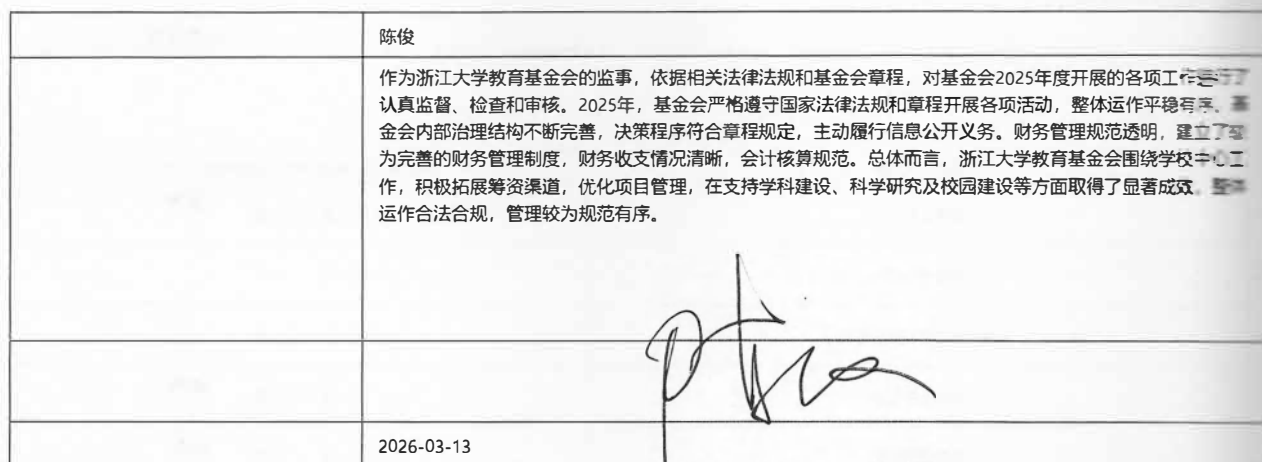 陈俊
作为浙江大学教育基金会的监事，依据相关法律法规和基金会章程，对基金会2025年度开展的各项工作进行了
认真监督、检查和审核。2025年，基金会严格遵守国家法律法规和章程开展各项活动，整体运作平稳有序。基
金会内部治理结构不断完善，决策程序符合章程规定，主动履行信息公开义务。财务管理规范透明，建立了较
为完善的财务管理制度，财务收支情况清晰，会计核算规范。总体而言，浙江大学教育基金会围绕学校中心工
作，积极拓展筹资渠道，优化项目管理，在支持学科建设、科学研究及校园建设等方面取得了显著成效。整体
运作合法合规，管理较为规范有序。
2026-03-13